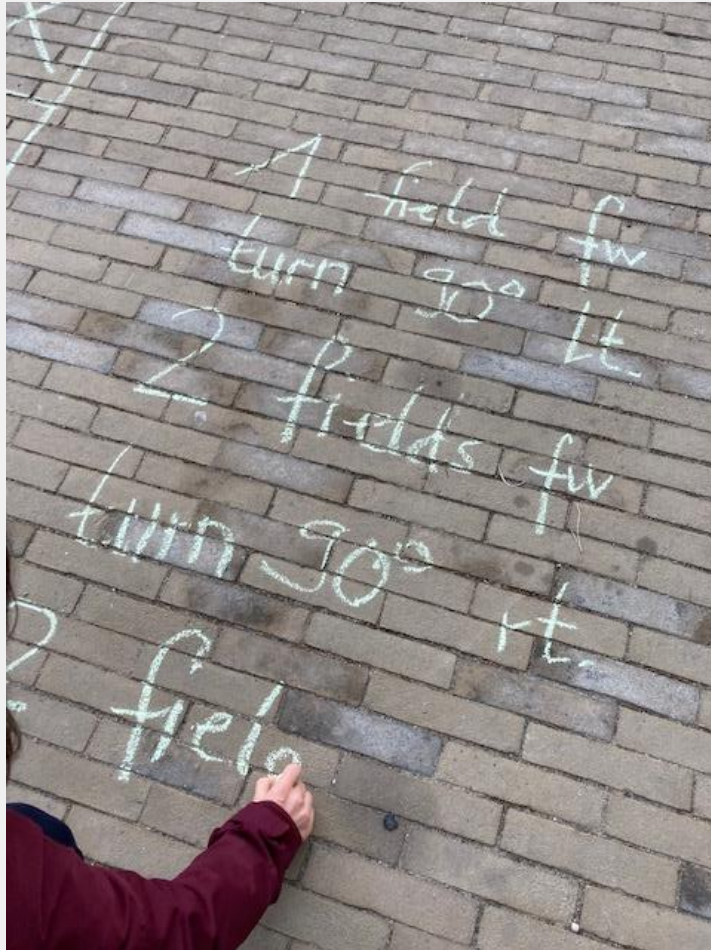 1 field fw
turn 90° Lt.
2 fields fw
turn 90° rt.
2 field